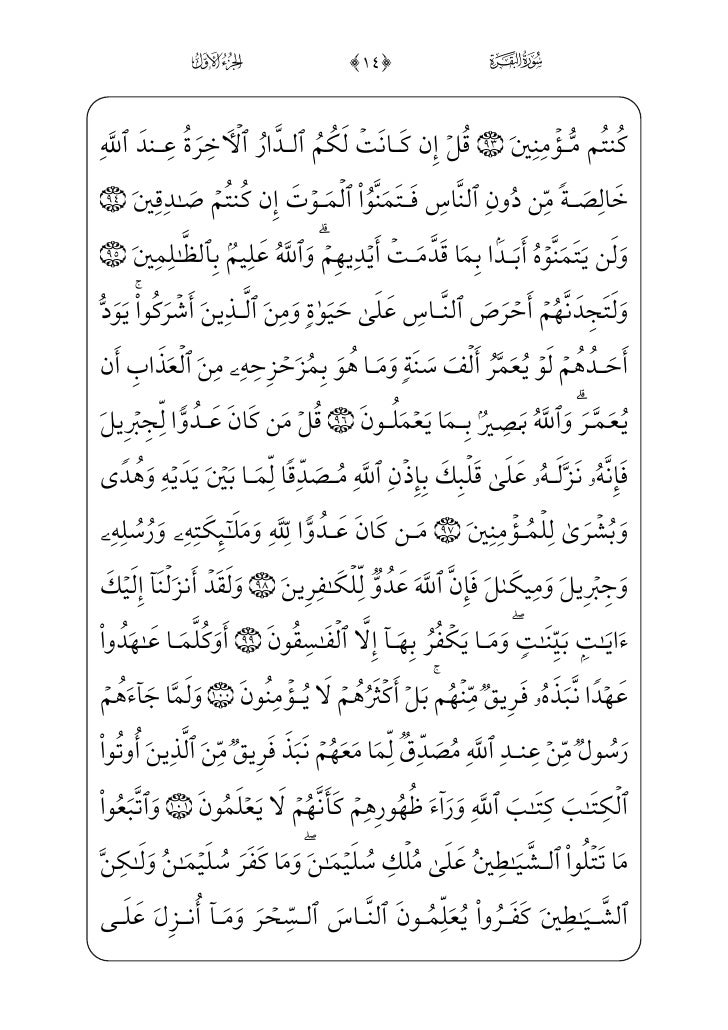 سُورَةُ البَقَرَةِ ﴿١٤﴾ الجُزْءُ الأَوَّلُ
كُنتُم مُّؤۡمِنِينَ ٩٣ قُلۡ إِن كَانَتۡ لَكُمُ ٱلدَّارُ ٱلۡأٓخِرَةُ عِندَ ٱللَّهِ
خَالِصَةٗ مِّن دُونِ ٱلنَّاسِ فَتَمَنَّوُاْ ٱلۡمَوۡتَ إِن كُنتُمۡ صَٰدِقِينَ ٩٤
وَلَن يَتَمَنَّوۡهُ أَبَدَۢا بِمَا قَدَّمَتۡ أَيۡدِيهِمۡۚ وَٱللَّهُ عَلِيمُۢ بِٱلظَّٰلِمِينَ ٩٥
وَلَتَجِدَنَّهُمۡ أَحۡرَصَ ٱلنَّاسِ عَلَىٰ حَيَوٰةٖ وَمِنَ ٱلَّذِينَ أَشۡرَكُواْۚ يَوَدُّ
أَحَدُهُمۡ لَوۡ يُعَمَّرُ أَلۡفَ سَنَةٖ وَمَا هُوَ بِمُزَحۡزِحِهِۦ مِنَ ٱلۡعَذَابِ أَن
يُعَمَّرَۗ وَٱللَّهُ بَصِيرُۢ بِمَا يَعۡمَلُونَ ٩٦ قُلۡ مَن كَانَ عَدُوّٗا لِّجِبۡرِيلَ
فَإِنَّهُۥ نَزَّلَهُۥ عَلَىٰ قَلۡبِكَ بِإِذۡنِ ٱللَّهِ مُصَدِّقٗا لِّمَا بَيۡنَ يَدَيۡهِ وَهُدٗى
وَبُشۡرَىٰ لِلۡمُؤۡمِنِينَ ٩٧ مَن كَانَ عَدُوّٗا لِّلَّهِ وَمَلَٰٓئِكَتِهِۦ وَرُسُلِهِۦ
وَجِبۡرِيلَ وَمِيكَىٰلَ فَإِنَّ ٱللَّهَ عَدُوّٞ لِّلۡكَٰفِرِينَ ٩٨ وَلَقَدۡ أَنزَلۡنَآ إِلَيۡكَ
ءَايَٰتِۭ بَيِّنَٰتٖۖ وَمَا يَكۡفُرُ بِهَآ إِلَّا ٱلۡفَٰسِقُونَ ٩٩ أَوَكُلَّمَا عَٰهَدُواْ
عَهۡدٗا نَّبَذَهُۥ فَرِيقٞ مِّنۡهُمۚ بَلۡ أَكۡثَرُهُمۡ لَا يُؤۡمِنُونَ ١٠٠ وَلَمَّا جَآءَهُمۡ
رَسُولٞ مِّنۡ عِندِ ٱللَّهِ مُصَدِّقٞ لِّمَا مَعَهُمۡ نَبَذَ فَرِيقٞ مِّنَ ٱلَّذِينَ أُوتُواْ
ٱلۡكِتَٰبَ كِتَٰبَ ٱللَّهِ وَرَآءَ ظُهُورِهِمۡ كَأَنَّهُمۡ لَا يَعۡلَمُونَ ١٠١ وَٱتَّبَعُواْ
مَا تَتۡلُواْ ٱلشَّيَٰطِينُ عَلَىٰ مُلۡكِ سُلَيۡمَٰنَۖ وَمَا كَفَرَ سُلَيۡمَٰنُ وَلَٰكِنَّ
ٱلشَّيَٰطِينَ كَفَرُواْ يُعَلِّمُونَ ٱلنَّاسَ ٱلسِّحۡرَ وَمَآ أُنزِلَ عَلَى